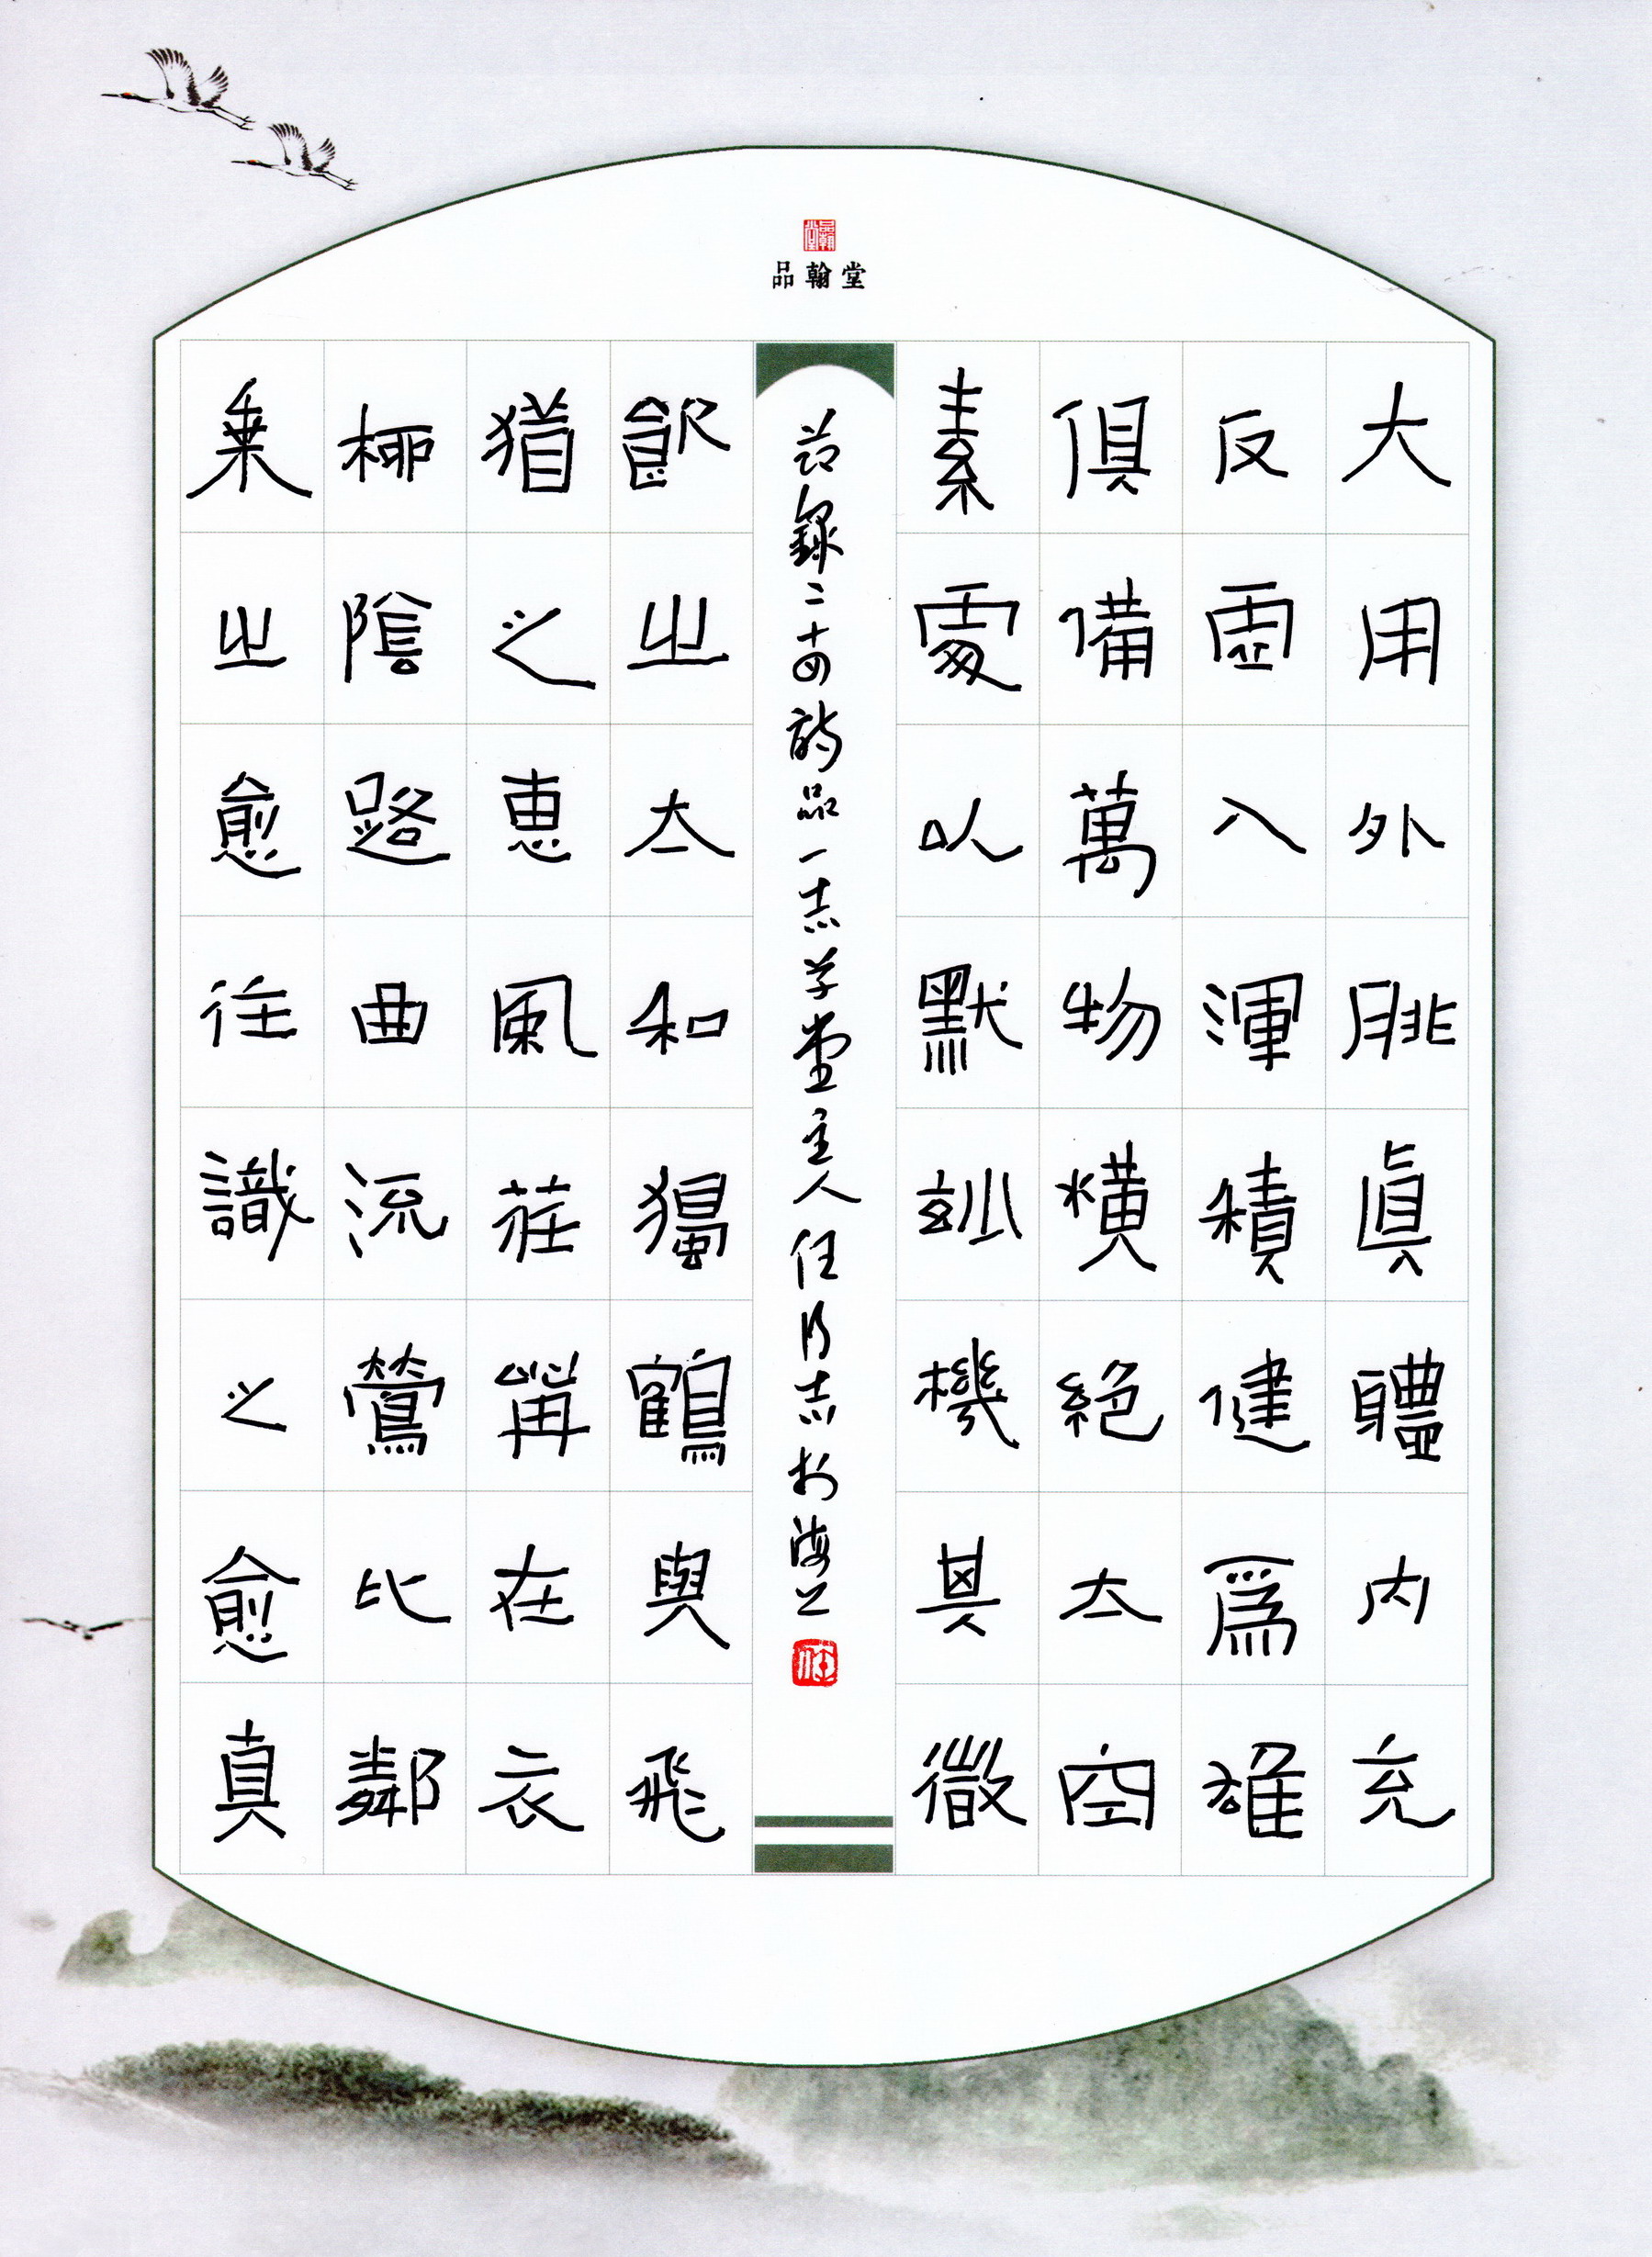 品翰堂
大用外腓眞軆內充
反虛入渾積健爲雄
俱備萬物橫絕太空
素處以默妙機其微
节錄二十四詩品一志学堂主人任志於海上
飲之太和獨鶴與飛
猶之惠風荏苒在衣
柳陰路曲流鶯比鄰
乘之愈往識之愈真